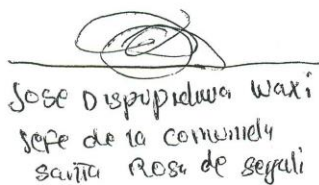 Jose Dispupidiwa Waxi
Jefe de la comunidy
santa Rosa de segali